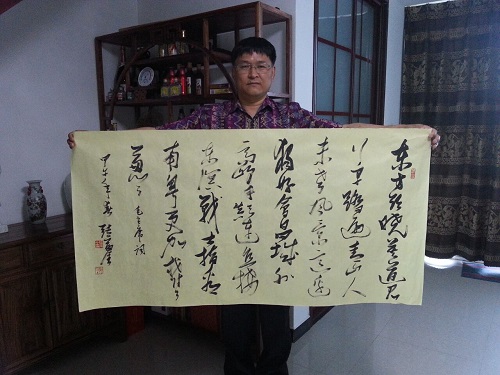 东方欲晓莫道君
行早踏遍青山人
未老风景这边
独好会昌城外
高峰颠连直接
东溟战士指看
南粤更加郁々
葱々毛主席词
甲午年春